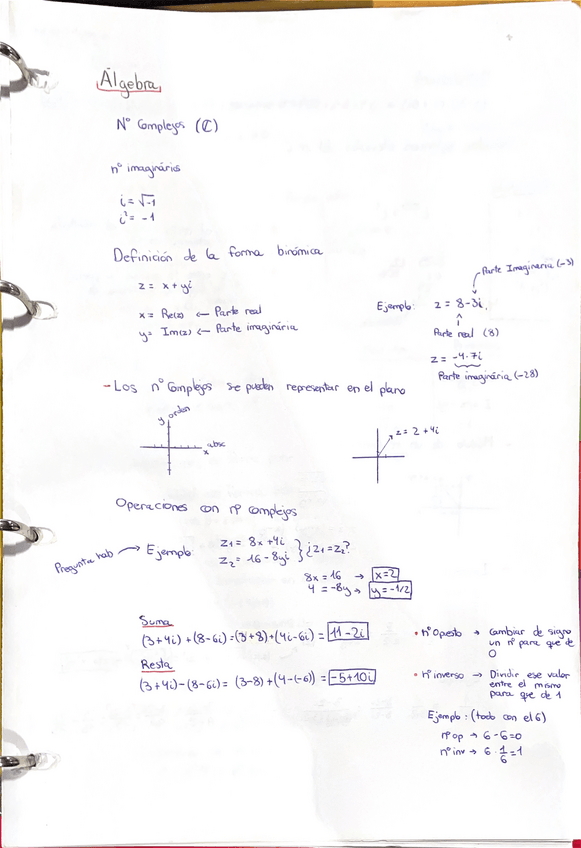 Álgebra
Nº Complejos (ℂ)
nº imaginarios
i = √-1
i² = -1
Definición de la forma binómica
z = x + yi
x = Re(z) ← Parte real
y = Im(z) ← Parte imaginária
Parte Imaginaria (-3)
Ejemplo: z = 8-3i
Parte real (8)
z = -4·7i
Parte imaginária (-28)
- Los nº Complejos se pueden representar en el plano
y orden
absc
x
z = 2 + 4i
Operaciones con nº complejos
Pregunta hab → Ejemplo: z₁ = 8x + 4i
z₂ = 16 - 8yi } ¿z₁ = z₂?
8x = 16 → x=2
4 = -8y → y = -1/2
Suma
(3+4i) + (8-6i) = (3+8) + (4i-6i) = 11-2i
Resta
(3+4i) - (8-6i) = (3-8) + (4-(-6)) = -5+10i
• nº Opesto → Cambiar de signo
un nº para que de
0
• nº inverso → Dividir ese valor
entre el mismo
para que de 1
Ejemplo: (todo con el 6)
nº op → 6-6=0
nº inv → 6 · 1/6 = 1